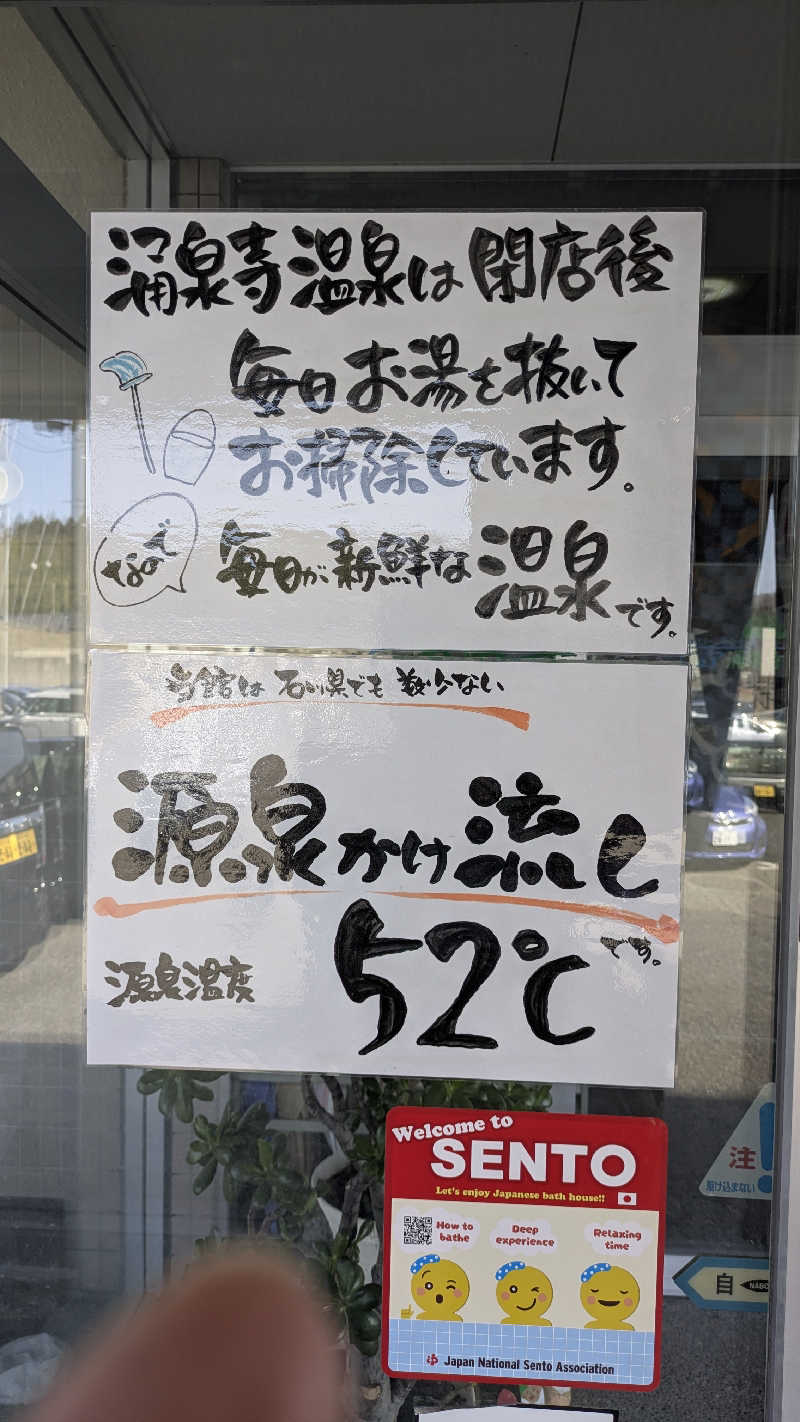 涌泉寺温泉は閉店後
毎日お湯を抜いて
お掃除しています。
なので
毎日が新鮮な温泉です。
当館は石川県でも数少ない
源泉かけ流し
です。
源泉温度
52℃
Welcome to
SENTO
Let's enjoy Japanese bath house!!
How to
bathe
Deep
experience
Relaxing
time
Japan National Sento Association
注
駆け込まない
自
NABCO